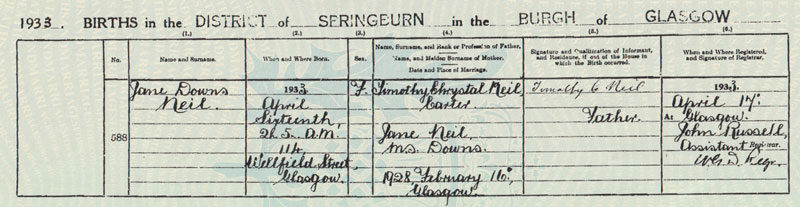 1933. BIRTHS in the DISTRICT of SPRINGBURN in the BURGH of GLASGOW
(1.) (2.) (3.) (4.) (5.) (6.)
No. Name and Surname. When and Where Born. Sex. Name, Surname, and Rank or Profession of Father. Name, and Maiden Surname of Mother. Date and Place of Marriage. Signature and Qualification of Informant, and Residence, if out of the House in which the Birth occurred. When and Where Registered, and Signature of Registrar.
588
Jane Downs
Neil.
1933.
April
Sixteenth,
2h. 5. a.m.
114
Wellfield Street,
Glasgow.
F.
Timothy Chrystal Neil,
Carter.
Jane Neil,
m.s. Downs.
1928, February 16:
Glasgow.
Timothy C Neil
Father.
1933.
April 17:
At Glasgow.
John Russell,
Assistant Registrar.